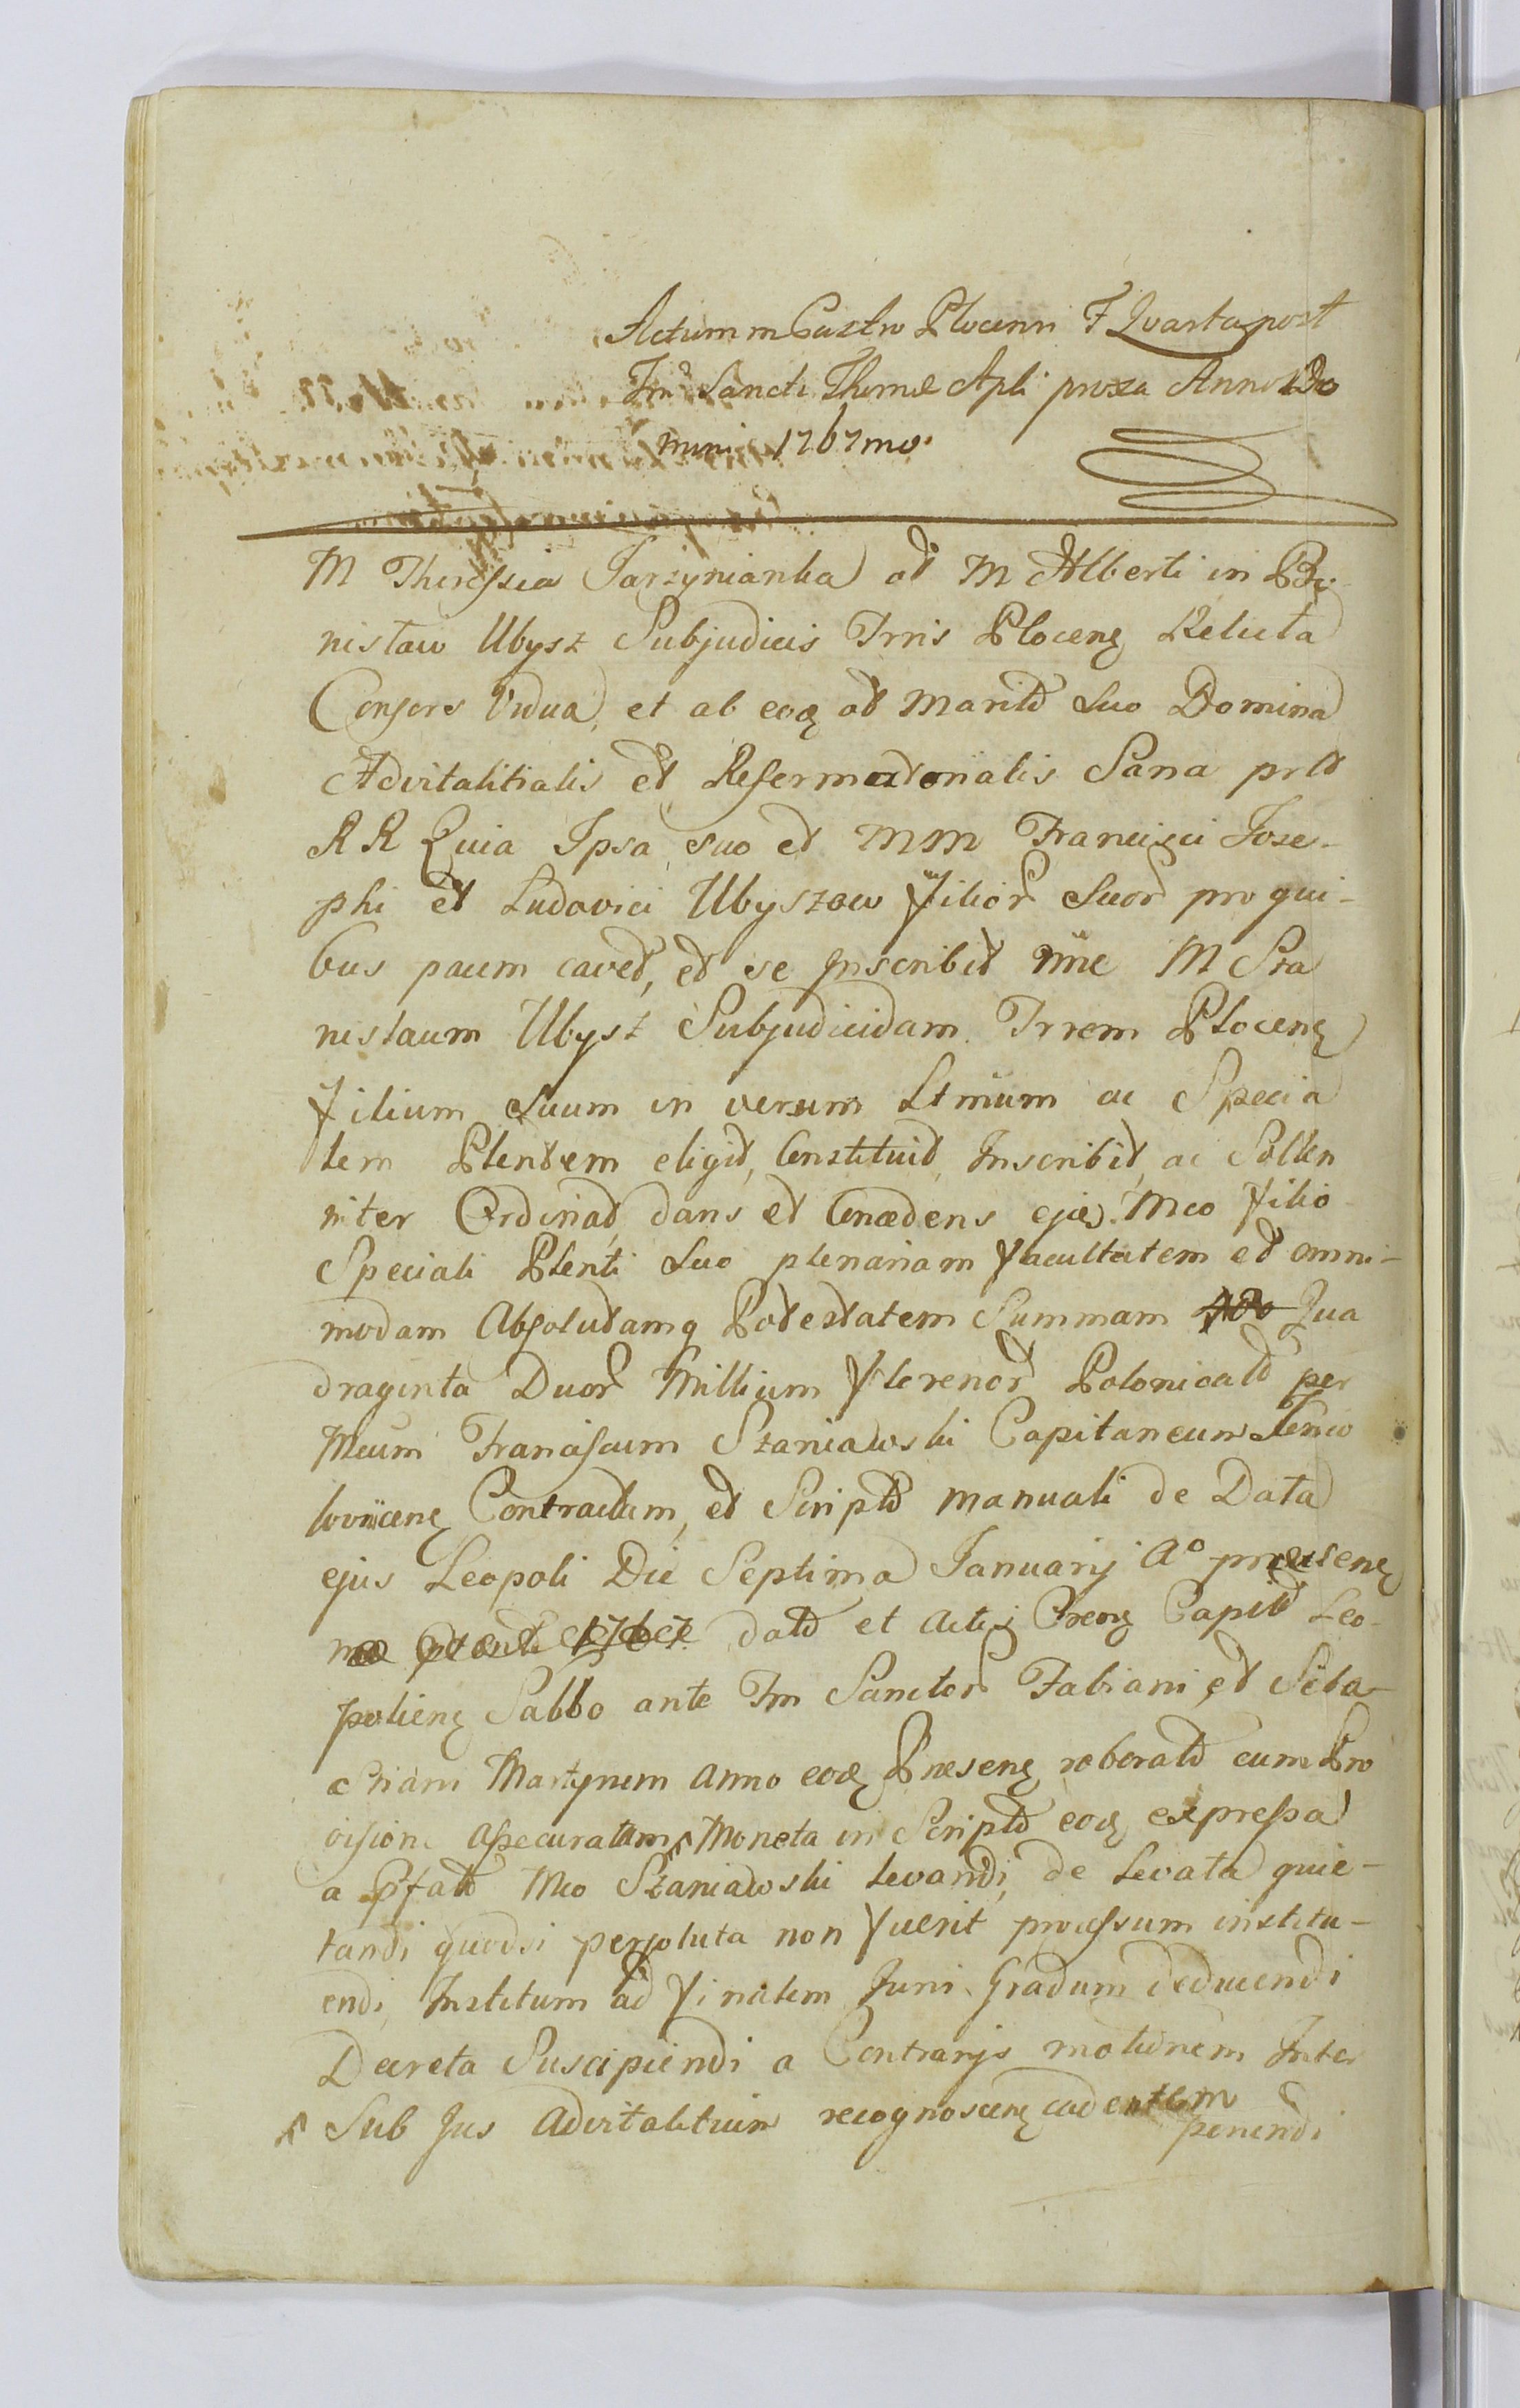 Actum in Castro Plocensi F Quarta post
Fm Sancti Thomæ Apli proxa Anno Do
mini 1767mo.
M Theressia Jarzynianka od M Alberti in Bro-
nistaw Ubysz Subjudicis Trris Plocens Relicta
Consors Vidua, et ab eod od Marito Suo Domina
Advitalitialis et Reformatorialis Sana prtt
RR Quia Ipsa suo et MM Francisci Jose-
phi et Ludovici Ubyszow filior Suor pro qui-
bus pacem cavet, et se Inscribit nne M Sta
nislaum Ubysz Subjudicidam Trrem Plocens
filium Suum in verum Ltmum ac Specia
lem Plentem eligit, Constituit, Inscribit, ac Sollen
niter Ordinat, dans et Concedens ejd. Mco filio
Speciali Plenti Suo plenariam facultatem et omni-
modam Absolutamq Potestatem Summam Qua
draginta Duor Millium florenor Polonicald per
Mcum Franciscum Szaniawski Capitaneum
Contractam, et Scripto manuali de Data
ejus Leopoli Die Septima Januarij Ao præsens
1767 dato et Actis Crens Capit Leo-
poliens Sabbo ante Fm Sanctor Fabiani et Seba-
stiani Martyrum Anno eod Præsens roborato cum Pro
visione Assecuratam Moneta in Scripto eod expressa
a Pfato Mco Szaniawski levandi, de Levata quie-
tandi quodsi persoluta non fuerit processum institu-
endi, Institum ad finalem Juris Gradum deducendi
Decreta Suscipiendi a Contrarijs motionem Inter
Sub Jus Advitalitium recognoscens cadentem
ponendi